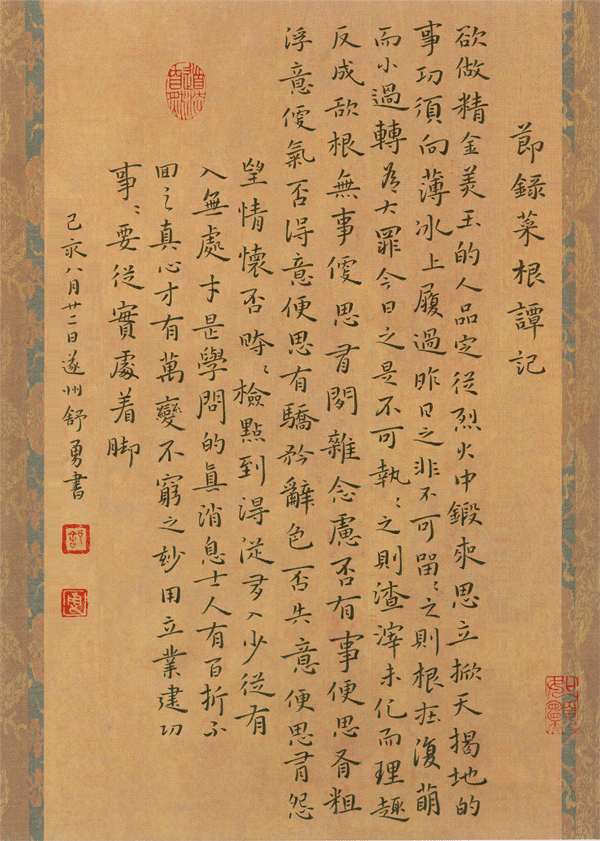 節錄菜根譚記
欲做精金美玉的人品定從烈火中鍛來思立掀天揭地的
事功須向薄冰上履過昨日之非不可留〻之則根在復萌
而小過轉為大罪今日之是不可執〻之則渣滓未化而理趣
反成欲根無事便思有閑雜念慮否有事便思有粗
浮意便氣否得意便思有驕矜辭色否失意便思有怨
望情懷否時〻檢點到得從多入少從有
入無處才是學問的真消息士人有百折不
回之真心才有萬變不窮之妙用立業建功
事〻要從實處着脚
己亥八月廿二日遂州舒勇書
舒
勇